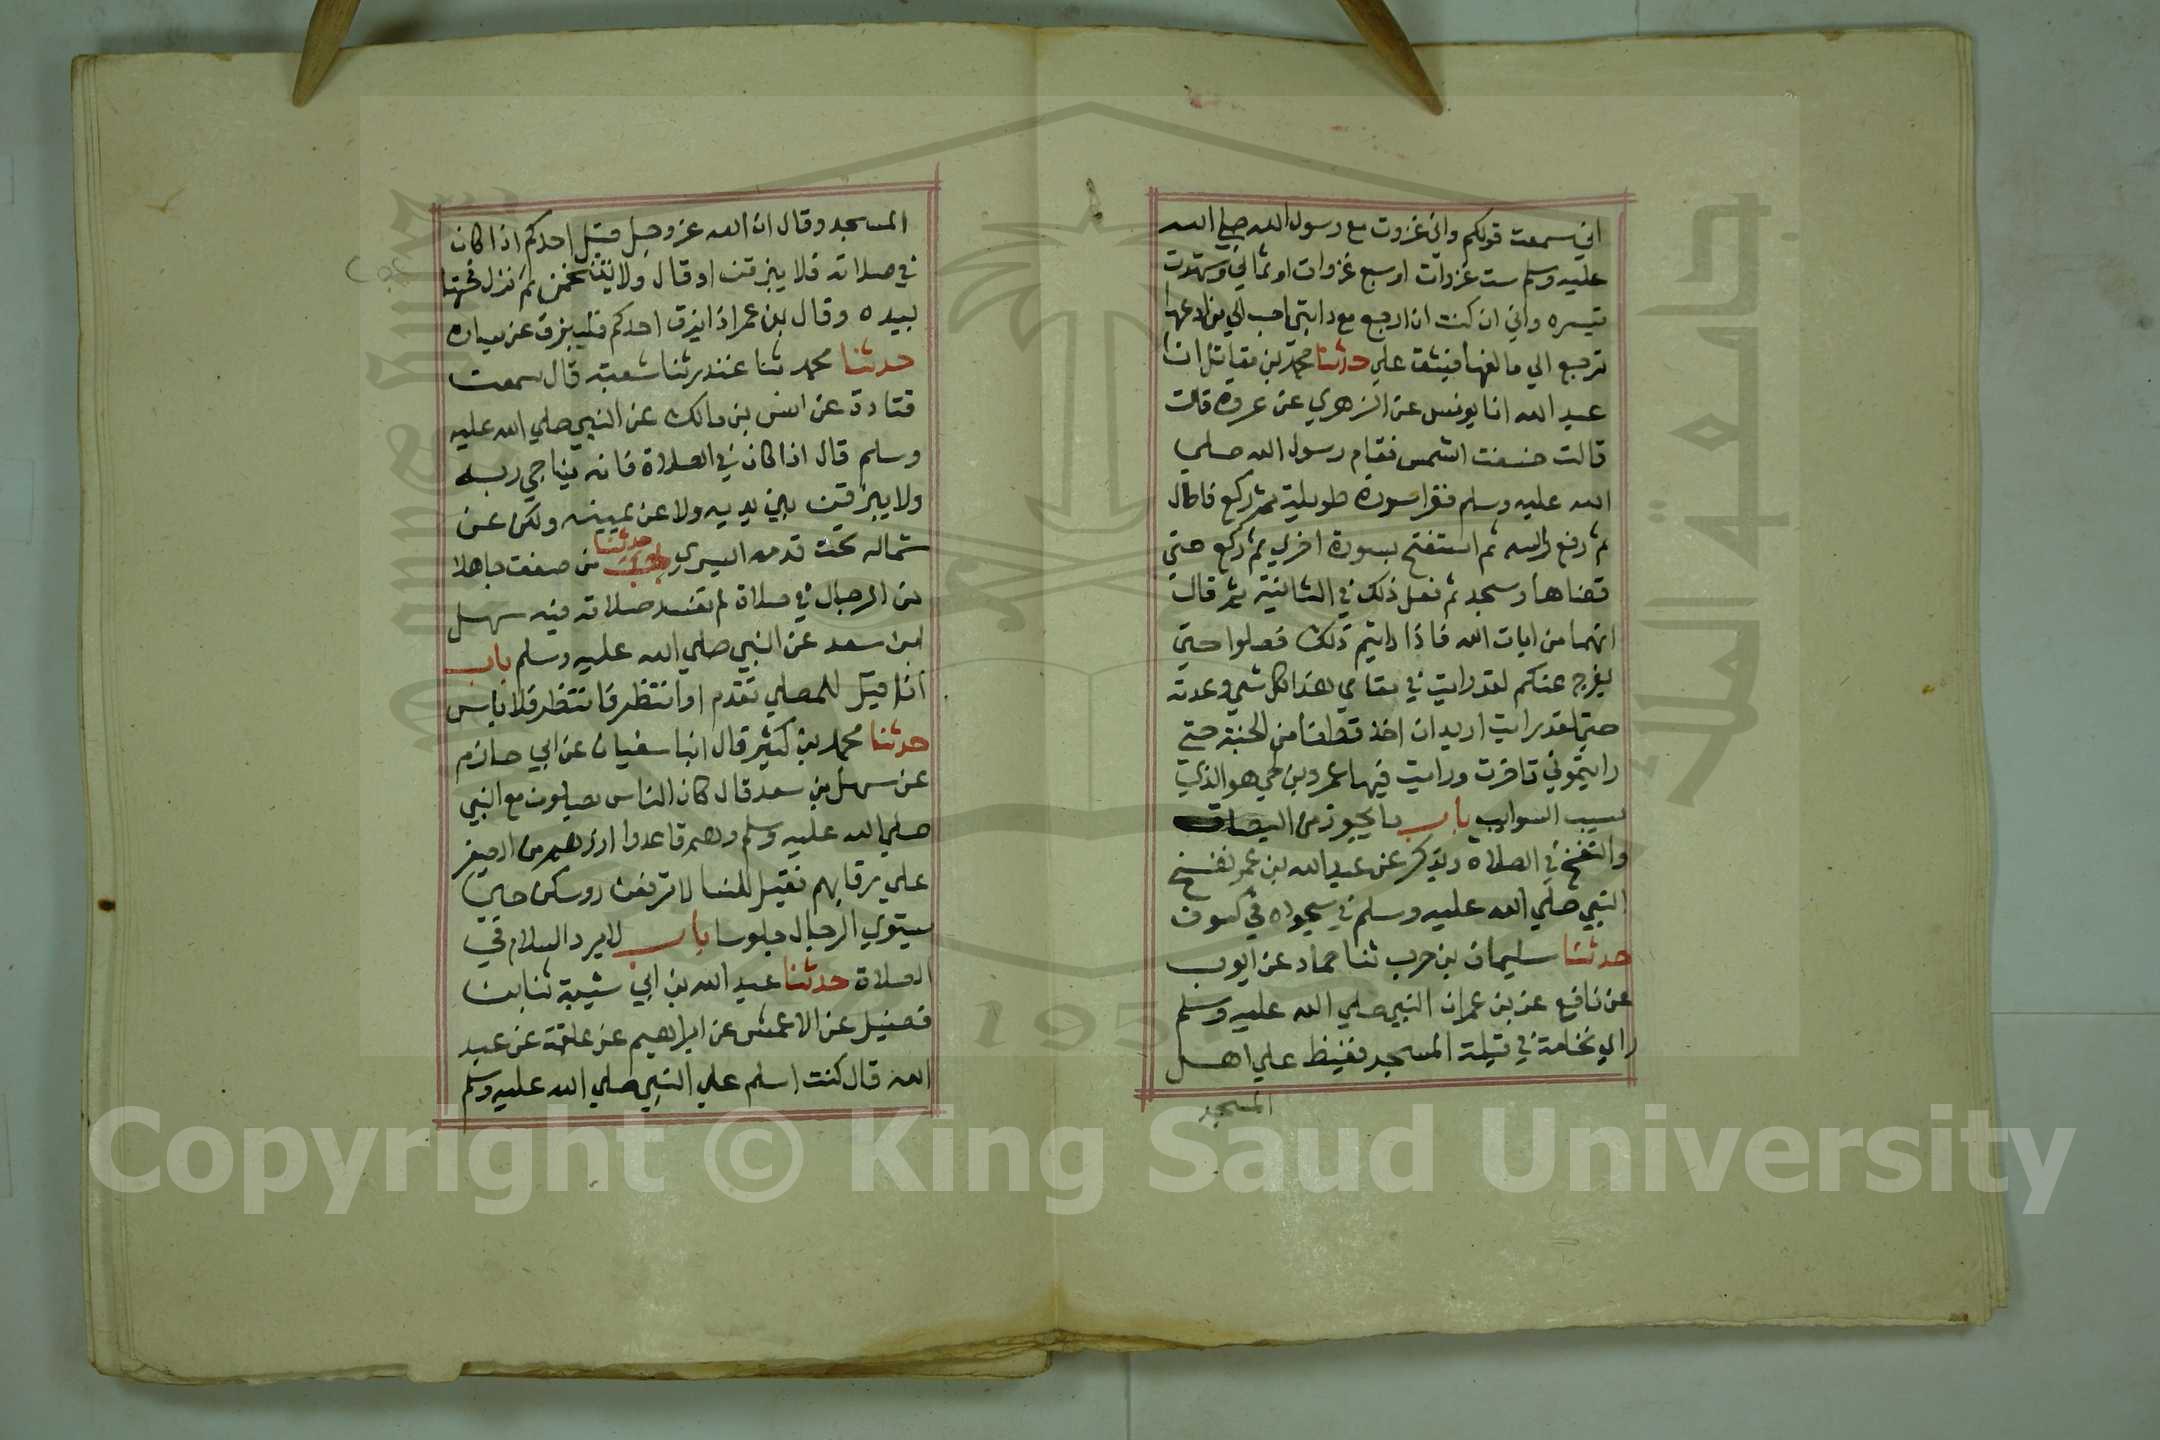 اني سمعت قولكم واني غزوت مع رسول الله صلي الله
عليه وسلم ست غزوات او سبع غزوات او ثماني وشهدت
تيسره واني ان كنت ان ارجع مع دابتي احب الي من ادعها
ترجع الي مالفها فيشق علي حدثنا محمد بن مقاتل انا
عبد الله انا يونس عن الزهري عن عروه قالت
قالت خسفت الشمس فقام رسول الله صلي
الله عليه وسلم فقرا سورة طويلة ثم ركع فاطال
ثم رفع راسه ثم استفتح بسورة اخري ثم ركع حتي
قضاها وسجد ثم فعل ذلك في الثانية ثم قال
انهما من ايات الله فاذا رايتم ذلك فصلوا حتي
يفرج عنكم لقد رايت في مقامي هذا كل شي وعدته
حتي لقد رايت اريد ان اخذ قطفا من الجنة حتي
رايتموني تاخرت ورايت فيها عمرو بن لحي هو الذي
سيب السوايب باب ما يجوز من البصاق
والنفخ في الصلاة ويذكر عن عبد الله بن عمر نفخ
النبي صلي الله عليه وسلم في سجوده في كسوف
حدثنا سليمان بن حرب ثنا حماد عن ايوب
عن نافع عن بن عمر ان النبي صلي الله عليه وسلم
راي نخامة في قبلة المسجد فغيظ علي اهل
المسجد
المسجد وقال ان الله عز وجل قبل احدكم اذا كان
في صلاته فلا يبزقن او قال ولا يتنخمن ثم نزل فحتها
بيده وقال بن عمر اذا ابزق احدكم فليبزق عن يساره
حدثنا محمد ثنا غندر ثنا شعبة قال سمعت
قتادة عن انس بن مالك عن النبي صلي الله عليه
وسلم قال اذا كان في الصلاة فانه يناجي ربه
ولا يبزقن بين يديه ولا عن يمينه ولكن عن
شماله تحت قدمه اليسري باب حدثنا من صفق جاهلا
من الرجال في صلاة لم تفسد صلاته فيه سهل
ابن سعد عن النبي صلي الله عليه وسلم باب
اذا قيل للمصلي تقدم او انتظر فانتظر فلا باس
حدثنا محمد بن كثير قال انبا سفيان عن ابي حازم
عن سهل بن سعد قال كان الناس يصلون مع النبي
صلي الله عليه وسلم وهم قاعدوا ازرهم من الصغر
علي رقابهم فقيل للنسا لا ترفعن روسكن حتي
يستوي الرجال جلوسا باب لا يرد السلام في
الصلاة حدثنا عبد الله بن ابي شيبة ثنا بن
فضيل عن الاعمش عن ابراهيم عن علقمة عن عبد
الله قال كنت اسلم علي النبي صلي الله عليه وسلم
جامعة الملك سعود
King Saud University
1957
Copyright © King Saud University